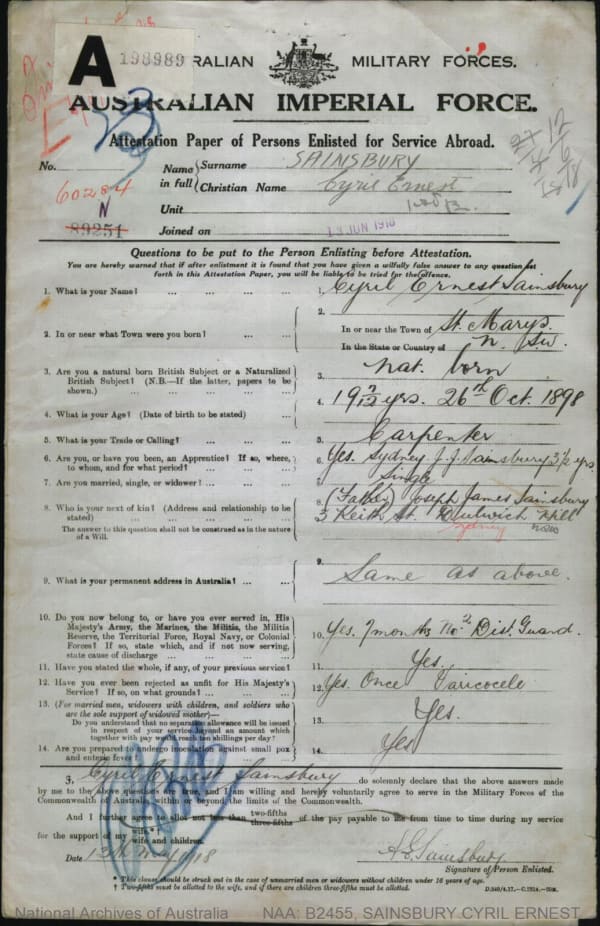 A 198989
RALIAN MILITARY FORCES.
AUSTRALIAN IMPERIAL FORCE.
Attestation Paper of Persons Enlisted for Service Abroad.
No. Name in full { Surname SAINSBURY
60284 Christian Name Cyril Ernest
N Unit
89251 Joined on 13 JUN 1918
Questions to be put to the Person Enlisting before Attestation.
You are hereby warned that if after enlistment it is found that you have given a wilfully false answer to any question set
forth in this Attestation Paper, you will be liable to be tried for the offence.
1. What is your Name? ... ... ... ... 1. Cyril Ernest Sainsbury
2. In or near what Town were you born? ... ... 2. In or near the Town of St. Marys.
In the State or Country of N. S.W.
3. Are you a natural born British Subject or a Naturalized
British Subject? (N.B.—If the latter, papers to be
shown.) ... ... ... ... ... 3. Nat. born
4. What is your Age? (Date of birth to be stated) ... 4. 19 7/12 yrs. 26th Oct. 1898
5. What is your Trade or Calling? ... ... ... 5. Carpenter
6. Are you, or have you been, an Apprentice? If so, where,
to whom, and for what period? ... ... ... 6. Yes. Sydney J. J. Sainsbury 3½ yrs.
7. Are you married, single, or widower? ... ... ... 7. Single
8. Who is your next of kin? (Address and relationship to be
stated) ... ... ... ... ... 8. (Father) Joseph James Sainsbury
3 Keith St. Dulwich Hill
Sydney NSW
The answer to this question shall not be construed as in the nature
of a Will.
9. What is your permanent address in Australia? ... ... 9. Same as above.
10. Do you now belong to, or have you ever served in, His
Majesty's Army, the Marines, the Militia, the Militia
Reserve, the Territorial Force, Royal Navy, or Colonial
Forces? If so, state which, and if not now serving,
state cause of discharge ... ... ... ... 10. Yes. 7 months No 2 Dist. Guard.
11. Have you stated the whole, if any, of your previous service? 11. Yes.
12. Have you ever been rejected as unfit for His Majesty's
Service? If so, on what grounds? ... ... ... 12. Yes. Once Varicocele
13. (For married men, widowers with children, and soldiers who
are the sole support of widowed mother)—
Do you understand that no separation allowance will be issued
in respect of your service beyond an amount which
together with pay would reach ten shillings per day? 13. Yes.
14. Are you prepared to undergo inoculation against small pox
and enteric fever? ... ... ... 14. Yes
I, Cyril Ernest Sainsbury do solemnly declare that the above answers made
by me to the above questions are true, and I am willing and hereby voluntarily agree to serve in the Military Forces of the
Commonwealth of Australia within or beyond the limits of the Commonwealth.
And I further agree to allot not less than two-fifths three-fifths of the pay payable to me from time to time during my service
for the support of my wife * wife and children. †
Date 13th May 1918 C.E. Sainsbury
Signature of Person Enlisted.
* This clause should be struck out in the case of unmarried men or widowers without children under 16 years of age.
† Two-fifths must be allotted to the wife, and if there are children three-fifths must be allotted.
National Archives of Australia NAA: B2455, SAINSBURY CYRIL ERNEST